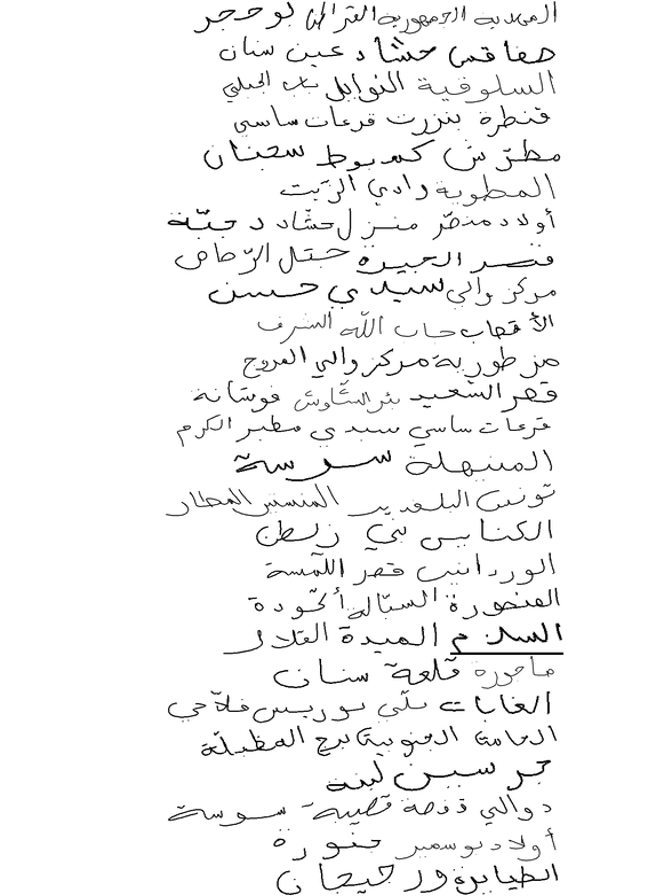 المهدية الجمهورية القراطن بو حجر
صفاقس حشاد عين سنان
السلوقية النوايل باب الجبلي
قنطرة بنزرت قرعات ساسي
مطرّش كمبوط سعنان
المطوية وادي الزيت
أولاد منصّر منزل حشّاد دخيّة
قصر الحيرة جبل الرّصاص
مركز والي سيدي حسن
الأقصاب جاب اللّه الشرف
مركز والي العروج
قصر السّعيد بئر الشّاوش فوسّانة
قرعات ساسي سيدي مطير الكرم
المنيهلة سوسة
تونس البلفدير المنستير المطار
الكنايس ني زلطن
الوردانين قصر اللّمسة
المنصورة السبّالة أكّودة
السلام الميدة القلال
ماجورة قلعة سنان
الغابات تلّي بوريس فلاحي
الحامة الجنوبية برج المظيلّة
جرسين لبنة
دوالي قفصة قصيبة سوسة
أولاد بوسمير جنورة
الطيايرة ورجيجان